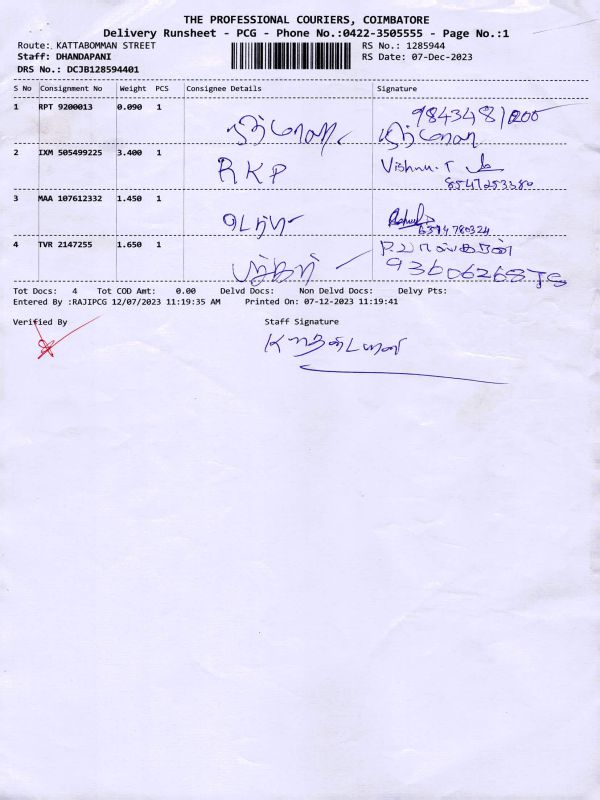 THE PROFESSIONAL COURIERS, COIMBATORE
Delivery Runsheet - PCG - Phone No.:0422-3505555 - Page No.:1
Route: KATTABOMMAN STREET RS No.: 1285944
Staff: DHANDAPANI RS Date: 07-Dec-2023
DRS No.: DCJB128594401
S No Consignment No Weight PCS Consignee Details Signature
1 RPT 9200013 0.090 1
2 IXM 505499225 3.400 1 RKP Vishnu.T
8547253380
3 MAA 107612332 1.450 1
6374780324
4 TVR 2147255 1.650 1
Tot Docs: 4 Tot COD Amt: 0.00 Delvd Docs: Non Delvd Docs: Delvy Pts:
Entered By :RAJIPCG 12/07/2023 11:19:35 AM Printed On: 07-12-2023 11:19:41
Verified By Staff Signature